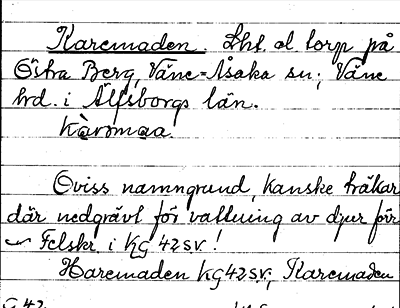 Karemaden. Lht. el torp på
Östra Berg, Väne-Åsaka sn; Väne
hrd. i Älfsborgs län.
kàrmaa.
Oviss namngrund, kanske tråkar
där nedgrävt för vattning av djur förr
Felskr i KG 42 s.v!
Haremaden KG 42 s.v; Karemaden
G 42